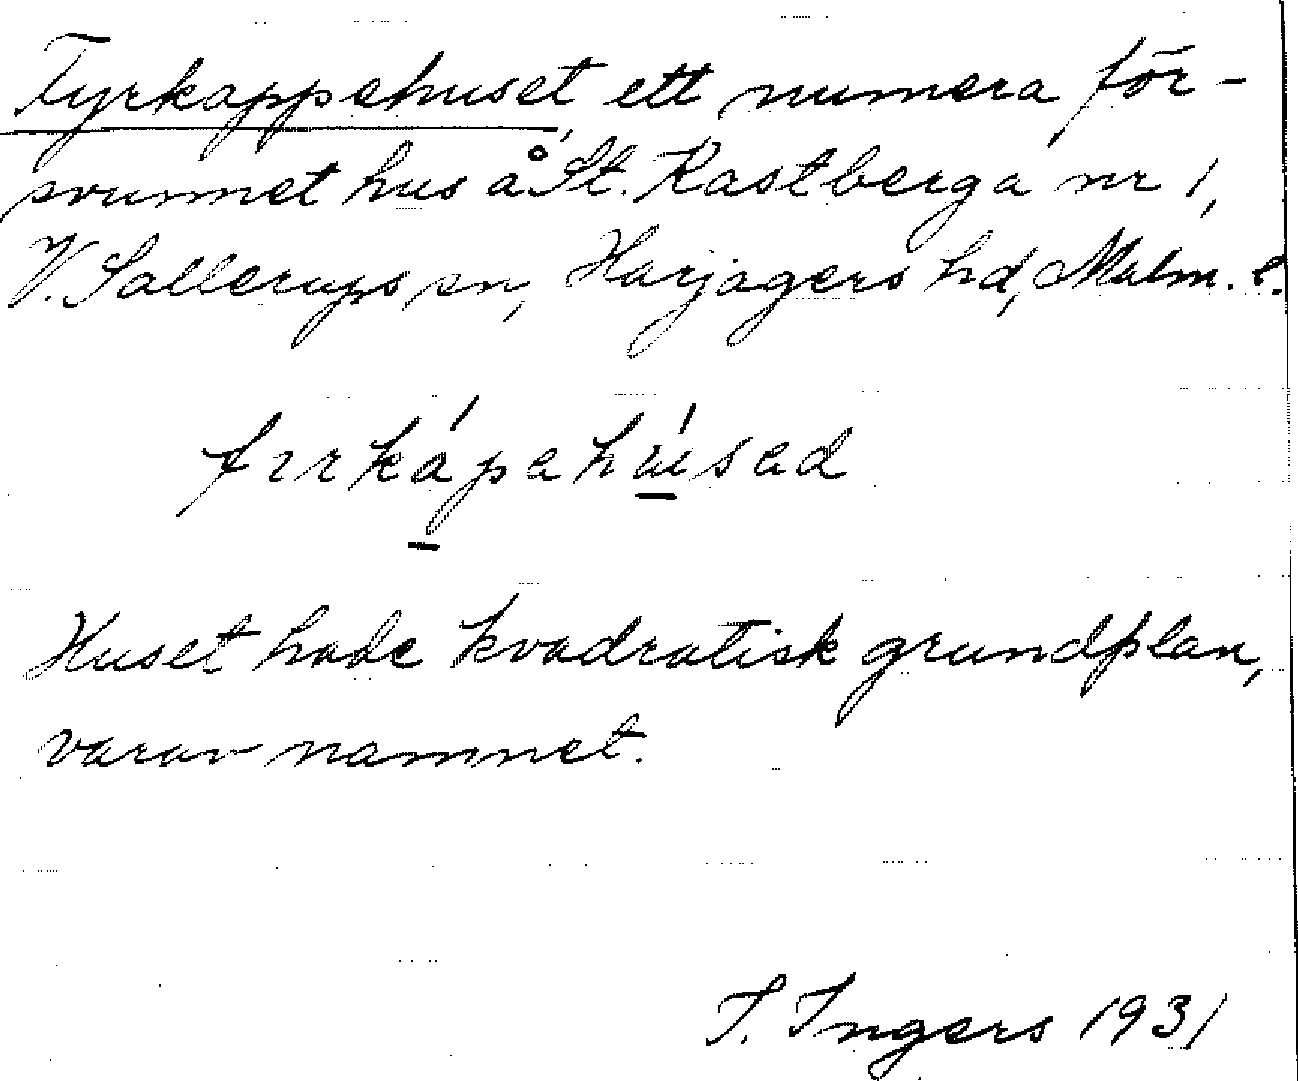 Fyrkappehuset, ett numera för-
svunnet hus å St. Kastberga nr 1,
V. Sallerups sn, Harjagers hd, Malm. l.
Huset hade kvadratisk grundplan,
varav namnet.
I. Ingers 1931